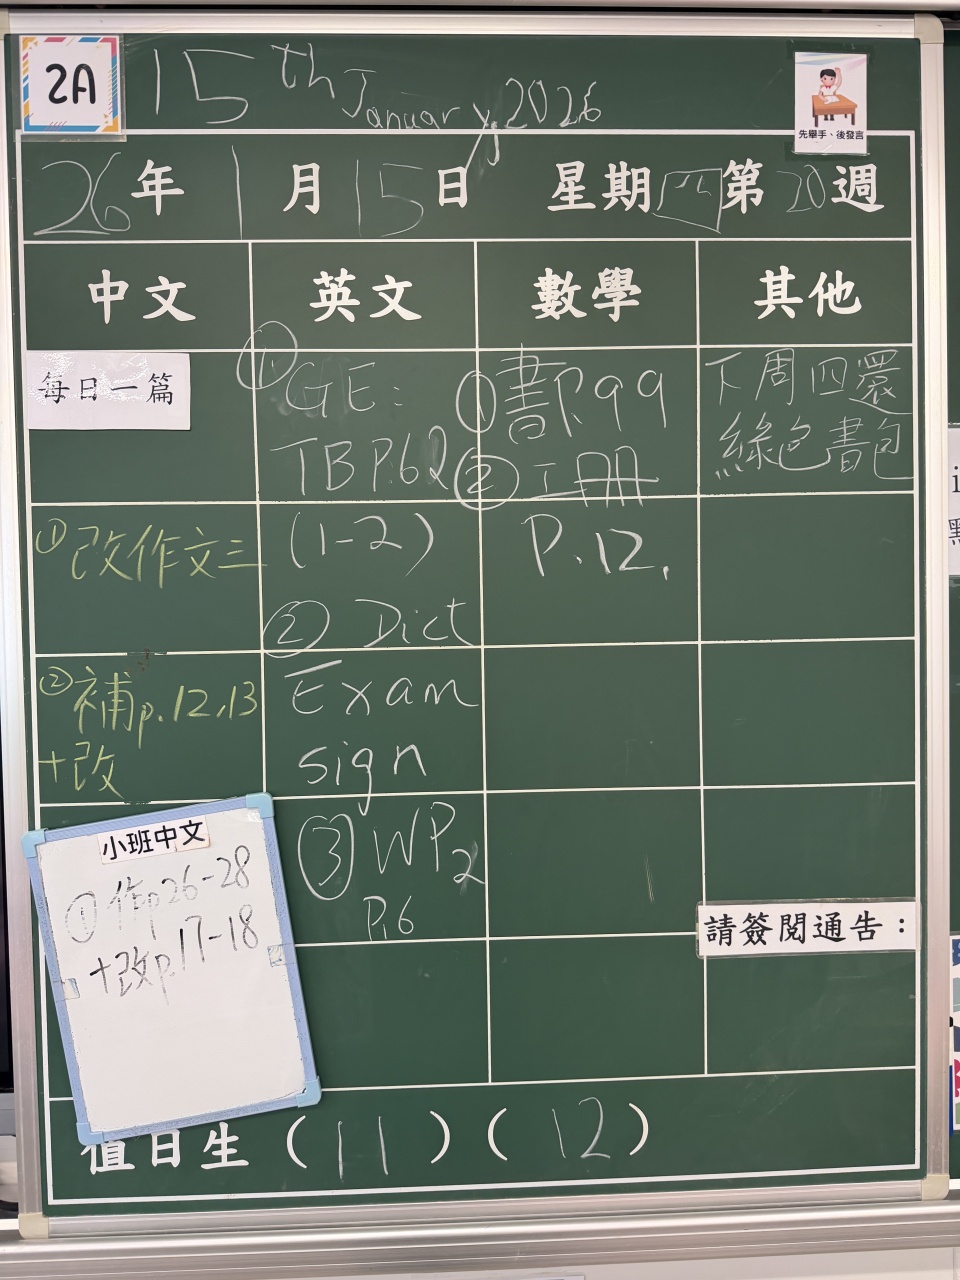 2A
15th January, 2026
先舉手、後發言
26年1月15日 星期四第20週
中文 英文 數學 其他
每日一篇
①改作文三
②補p.12,13
+改
小班中文
①作p26-28
+改p.17-18
①GE:
TB P.62
(1-2)
② Dict
Exam
sign
③ WP2
P.6
①書P.99
②工冊
P.12.
下周四還
綠色書包
請簽閱通告:
值日生 (11) (12)